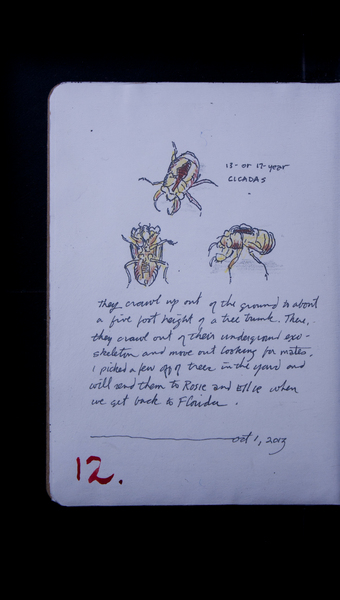 13- or 17-year
CICADAS
they crawl up out of the ground to about
a five foot height of a tree trunk. There,
they crawl out of their underground exo-
skeleton and move out looking for mates.
I picked a few off of trees in the yard and
will send them to Rosie and Ellie when
we get back to Florida.
Oct 1, 2013
12.